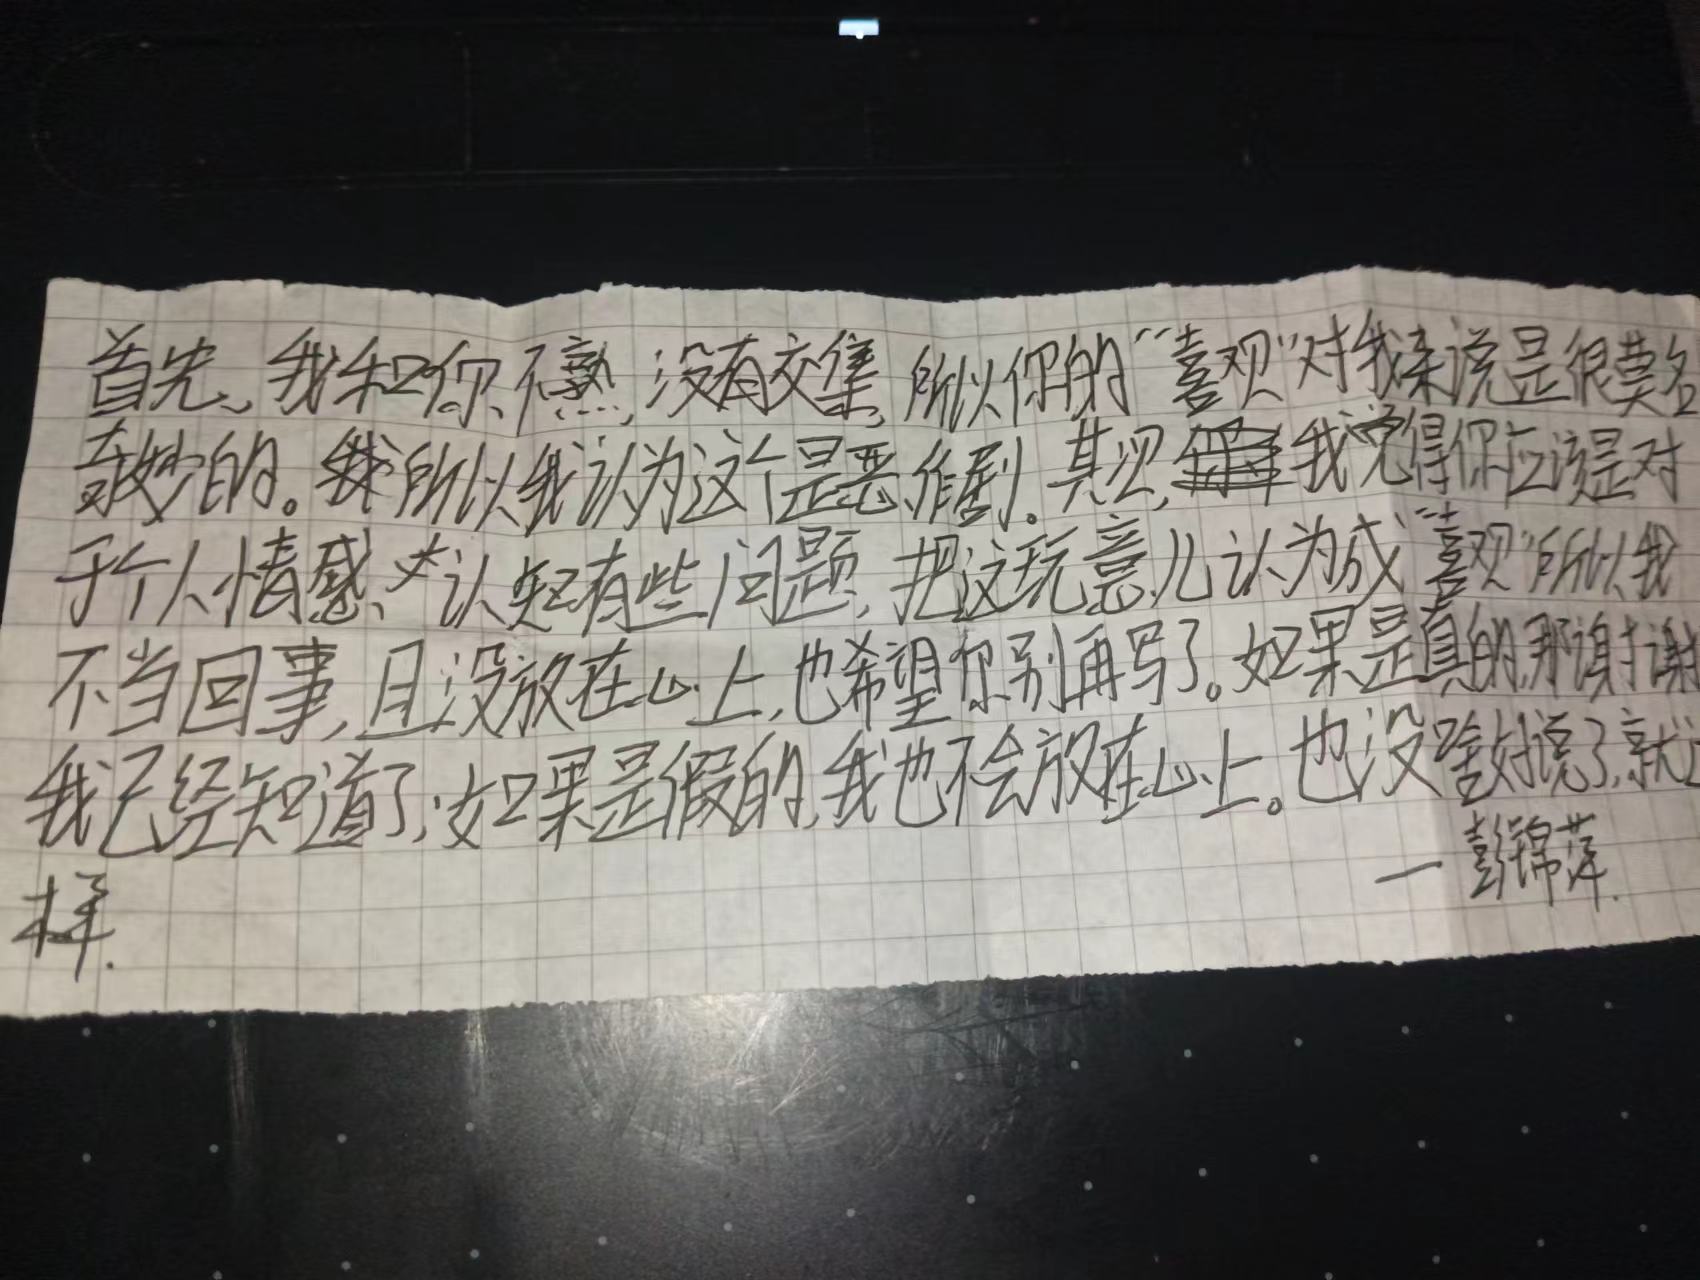 首先、我和你不熟,没有交集,所以你的“喜观”对我来说是很莫名
奇妙的。所以我认为这个是恶作剧。其次,我觉得你应该是对
于个人情感、认知有些问题,把这玩意儿认为成“喜观”所以我
不当回事,且没放在心上,也希望你别再写了。如果是真的,那谢谢
我已经知道了,如果是假的,我也不会放在心上。也没啥好说了,就这
样.
一彭锦萍.